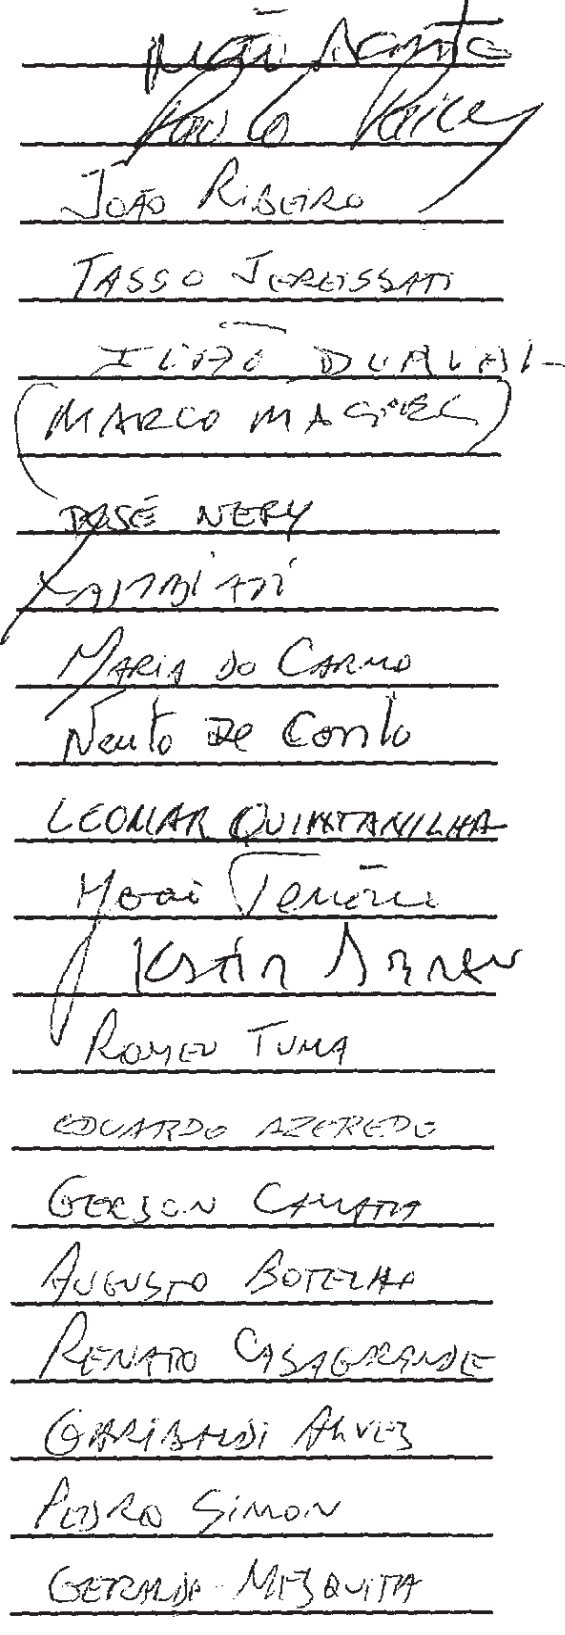 Paulo
João Ribeiro
TASSO JEREISSATI
DURVAL
MARCO MACIEL
JOSÉ NERY
MARIA DO CARMO
Neuto De Conto
LEOMAR QUINTANILHA
Tenório
Kátia Abreu
ROMEU TUMA
EDUARDO AZEREDO
GERSON CAMATA
AUGUSTO BOTELHO
RENATO CASAGRANDE
GARIBALDI ALVES
PEDRO SIMON
GERALDO MESQUITA